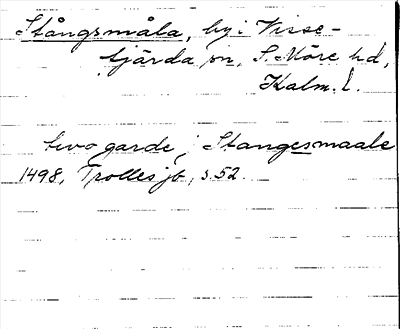 Stångsmåla, by i Visse-
fjärda sn, S. Möre hd,
Kalm. l.
two garde i Stangesmaale
1498, Trolles jb, s. 52.